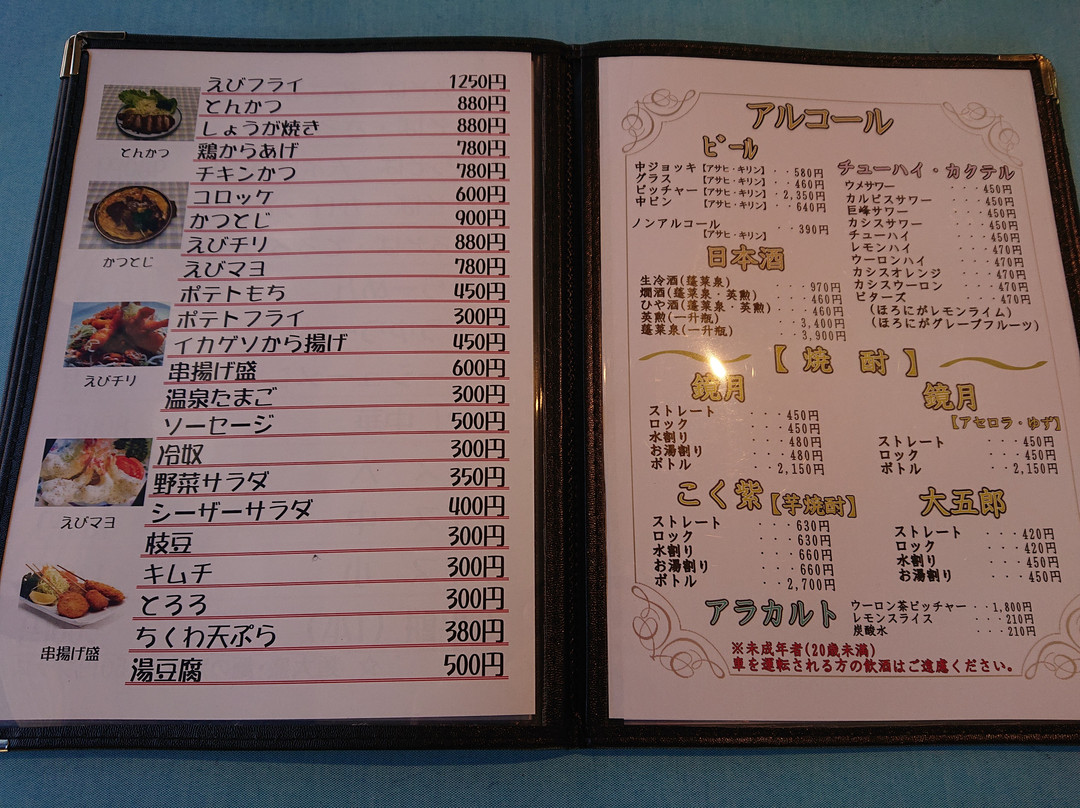 えびフライ 1250円
とんかつ 880円
しょうが焼き 880円
鶏からあげ 780円
チキンかつ 780円
コロッケ 600円
かつとじ 900円
えびチリ 880円
えびマヨ 780円
ポテトもち 450円
ポテトフライ 300円
イカゲソから揚げ 450円
串揚げ盛 600円
温泉たまご 300円
ソーセージ 500円
冷奴 300円
野菜サラダ 350円
シーザーサラダ 400円
枝豆 300円
キムチ 300円
とろろ 300円
ちくわ天ぷら 380円
湯豆腐 500円
とんかつ
かつとじ
えびチリ
えびマヨ
串揚げ盛
アルコール
ビール
中ジョッキ【アサヒ・キリン】・・580円
グラス【アサヒ・キリン】・・460円
ピッチャー【アサヒ・キリン】・2,350円
中ビン【アサヒ・キリン】・・640円
ノンアルコール・・390円
【アサヒ・キリン】
日本酒
生冷酒(蓬莱泉)・・970円
燗酒(蓬莱泉・英勲)・・460円
ひや酒(蓬莱泉・英勲)・・460円
英勲(一升瓶)・・3,400円
蓬莱泉(一升瓶)・・3,900円
チューハイ・カクテル
ウメサワー・・・450円
カルピスサワー・・・450円
巨峰サワー・・・450円
カシスサワー・・・450円
チューハイ・・・450円
レモンハイ・・・470円
ウーロンハイ・・・470円
カシスオレンジ・・・470円
カシスウーロン・・・470円
ビターズ・・・470円
(ほろにがレモンライム)
(ほろにがグレープフルーツ)
【焼酎】
鏡月
ストレート・・・450円
ロック・・・450円
水割り・・・480円
お湯割り・・・480円
ボトル・・2,150円
鏡月
【アセロラ・ゆず】
ストレート・・・450円
ロック・・・450円
ボトル・・2,150円
こく紫【芋焼酎】
ストレート・・・630円
ロック・・・630円
水割り・・・660円
お湯割り・・・660円
ボトル・・2,700円
大五郎
ストレート・・・420円
ロック・・・420円
水割り・・・450円
お湯割り・・・450円
アラカルト
ウーロン茶ピッチャー・・1,800円
レモンスライス・・・210円
炭酸水・・・210円
※未成年者(20歳未満)
車を運転される方の飲酒はご遠慮ください。